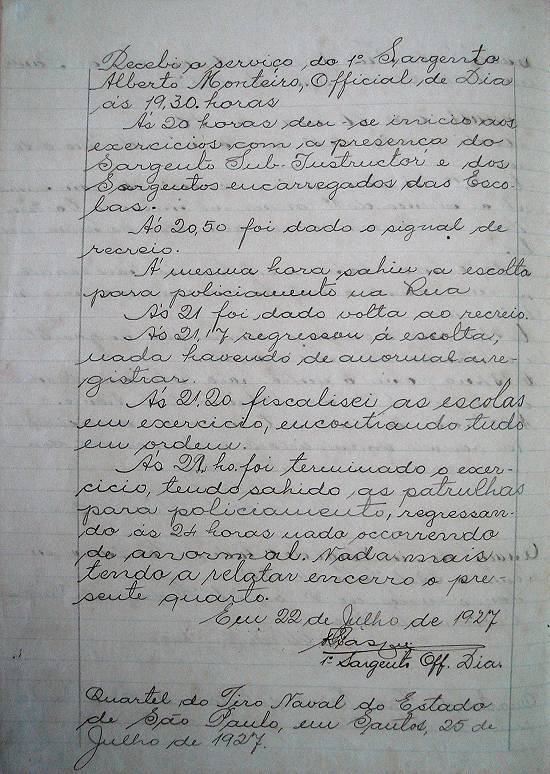 Recebi o serviço do 1º Sargento
Alberto Monteiro, Official de Dia
ás 19,30 horas
Ás 20 horas deu-se inicio aos
exercicios com a presença do
Sargento Sub-Instructor e dos
Sargentos encarregados das Esco-
las.
Ás 20,50 foi dado o signal de
recreio.
Á mesma hora sahiu a escolta
para policiamento na Rua
Ás 21 foi dado volta ao recreio.
Ás 21,17 regressou á escolta,
nada havendo de anormal a re-
gistrar.
Ás 21,20 fiscalisei as escolas
em exercicio, encontrando tudo
em ordem.
Ás 22 ho. foi terminado o exer-
cicio, tendo sahido as patrulhas
para policiamento, regressan-
do ás 24 horas nado occorrendo
de anormal. Nada mais
tendo a relatar encerro o pre-
sente quarto.
Em 22 de Julho de 1927
1º Sargento Off. Dia.
Quartel do Tiro Naval do Estado
de São Paulo, em Santos, 25 de
Julho de 1927.